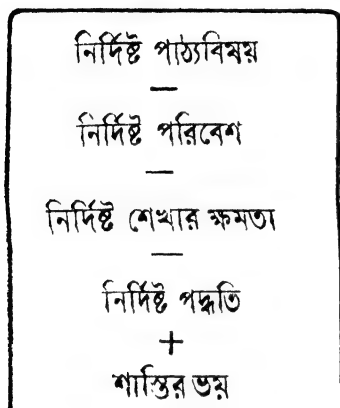 নির্দিষ্ট পাঠ্যবিষয়
—
নির্দিষ্ট পরিবেশ
—
নির্দিষ্ট শেখার ক্ষমতা
—
নির্দিষ্ট পদ্ধতি
+
শাস্তির ভয়